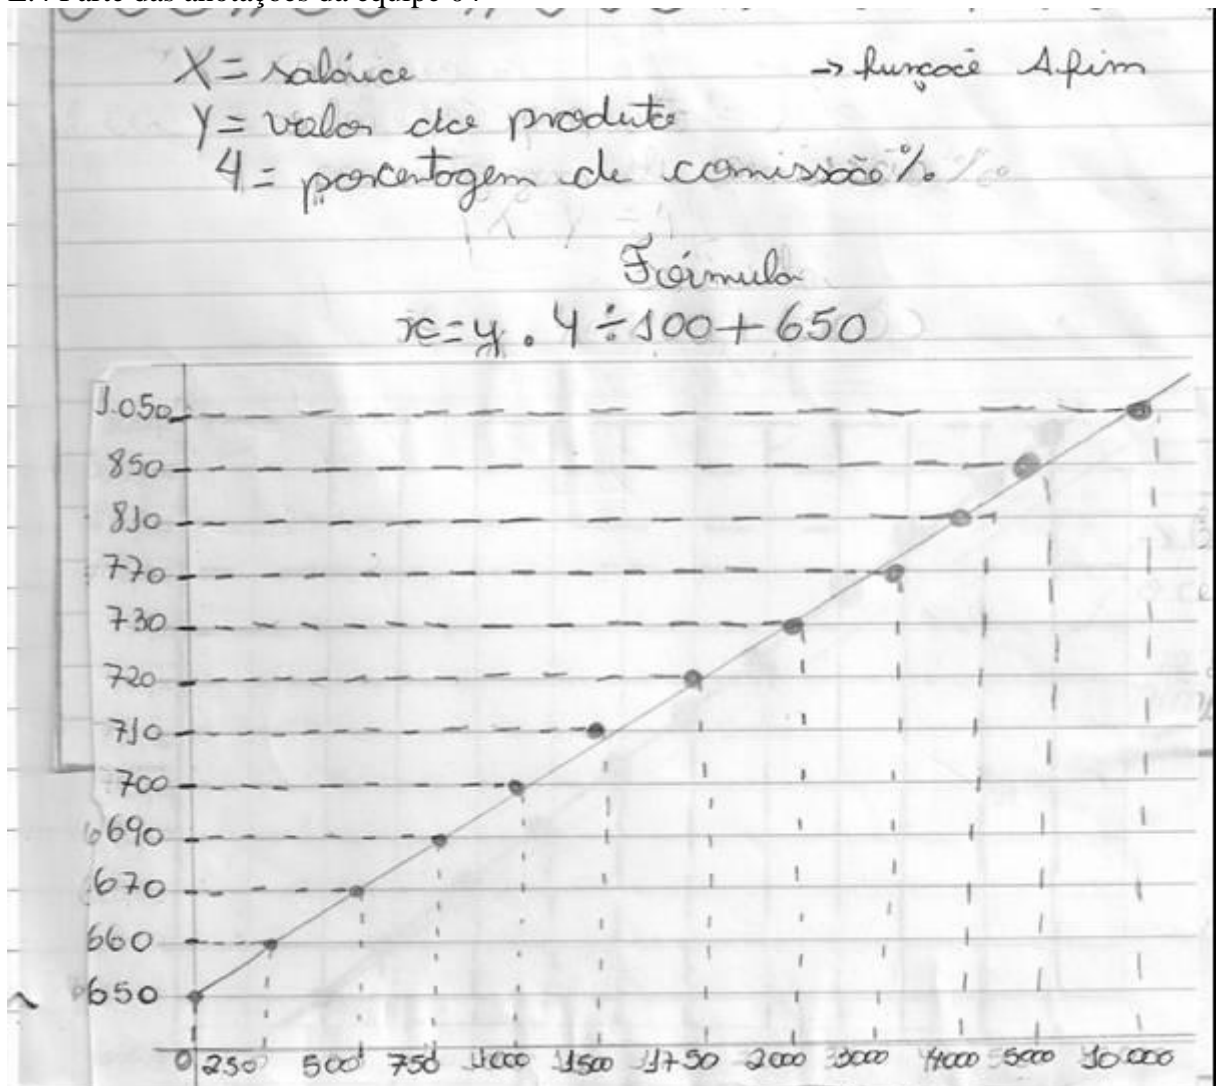 X = salário
→ função Afim
Y = valor do produto
4 = porcentagem de comissão %
Fórmula
x = y . 4 ÷ 100 + 650
1.050
850
810
770
730
720
710
700
690
670
660
650
0 250 500 750 1000 1500 1750 2000 3000 4000 5000 10000